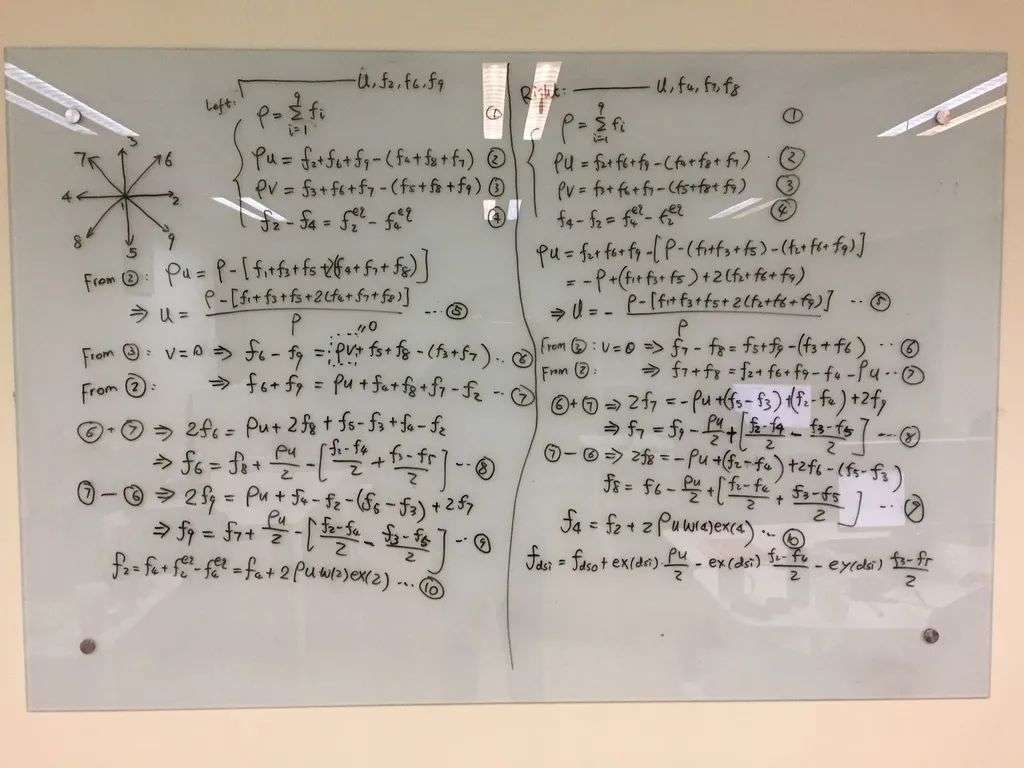 Left: U, f2, f6, f9
ρ = Σ_{i=1}^{9} fi ①
ρu = f2+f6+f9-(f4+f8+f7) ②
ρv = f3+f6+f7-(f5+f8+f9) ③
f2-f4 = f2^{eq} - f4^{eq} ④
3
7 6
4 1 2
8 9
5
From ②: ρu = ρ-[f1+f3+f5+2(f4+f7+f8)]
⇒ U = (ρ-[f1+f3+f5+2(f4+f7+f8)])/ρ ...⑤
From ③: v=0 ⇒ f6-f9 = ρv+f5+f8-(f3+f7) ...⑥
"0
From ②: ⇒ f6+f9 = ρu+f4+f8+f7-f2 ...⑦
⑥+⑦ ⇒ 2f6 = ρu+2f8+f5-f3+f4-f2
⇒ f6 = f8 + ρu/2 - [(f2-f4)/2 + (f3-f5)/2] ...⑧
⑦-⑥ ⇒ 2f9 = ρu+f4-f2-(f5-f3)+2f7
⇒ f9 = f7 + ρu/2 - [(f2-f4)/2 - (f3-f5)/2] ...⑨
f2 = f4+f2^{eq}-f4^{eq} = f4+2ρu w(2)ex(2) ...⑩
Right: U, f4, f7, f8
ρ = Σ_{i=1}^{9} fi ①
ρu = f2+f6+f9-(f4+f8+f7) ②
ρv = f3+f6+f7-(f5+f8+f9) ③
f4-f2 = f4^{eq} - f2^{eq} ④
ρu = f2+f6+f9-[ρ-(f1+f3+f5)-(f2+f6+f9)]
= -ρ+(f1+f3+f5)+2(f2+f6+f9)
⇒ U = - (ρ-[f1+f3+f5+2(f2+f6+f9)])/ρ ...⑤
From ③: v=0 ⇒ f7-f8 = f5+f9-(f3+f6) ...⑥
From ②: ⇒ f7+f8 = f2+f6+f9-f4-ρu ...⑦
⑥+⑦ ⇒ 2f7 = -ρu+(f5-f3)+(f2-f4)+2f9
⇒ f7 = f9 - ρu/2 + [(f2-f4)/2 - (f3-f5)/2] ...⑧
⑦-⑥ ⇒ 2f8 = -ρu+(f2-f4)+2f6-(f5-f3)
f8 = f6 - ρu/2 + [(f2-f4)/2 + (f3-f5)/2] ...⑨
f4 = f2+2ρu w(4)ex(4) ...⑩
fdsi = fdso+ex(dsi) ρu/2 - ex(dsi) (f2-f4)/2 - ey(dsi) (f3-f5)/2